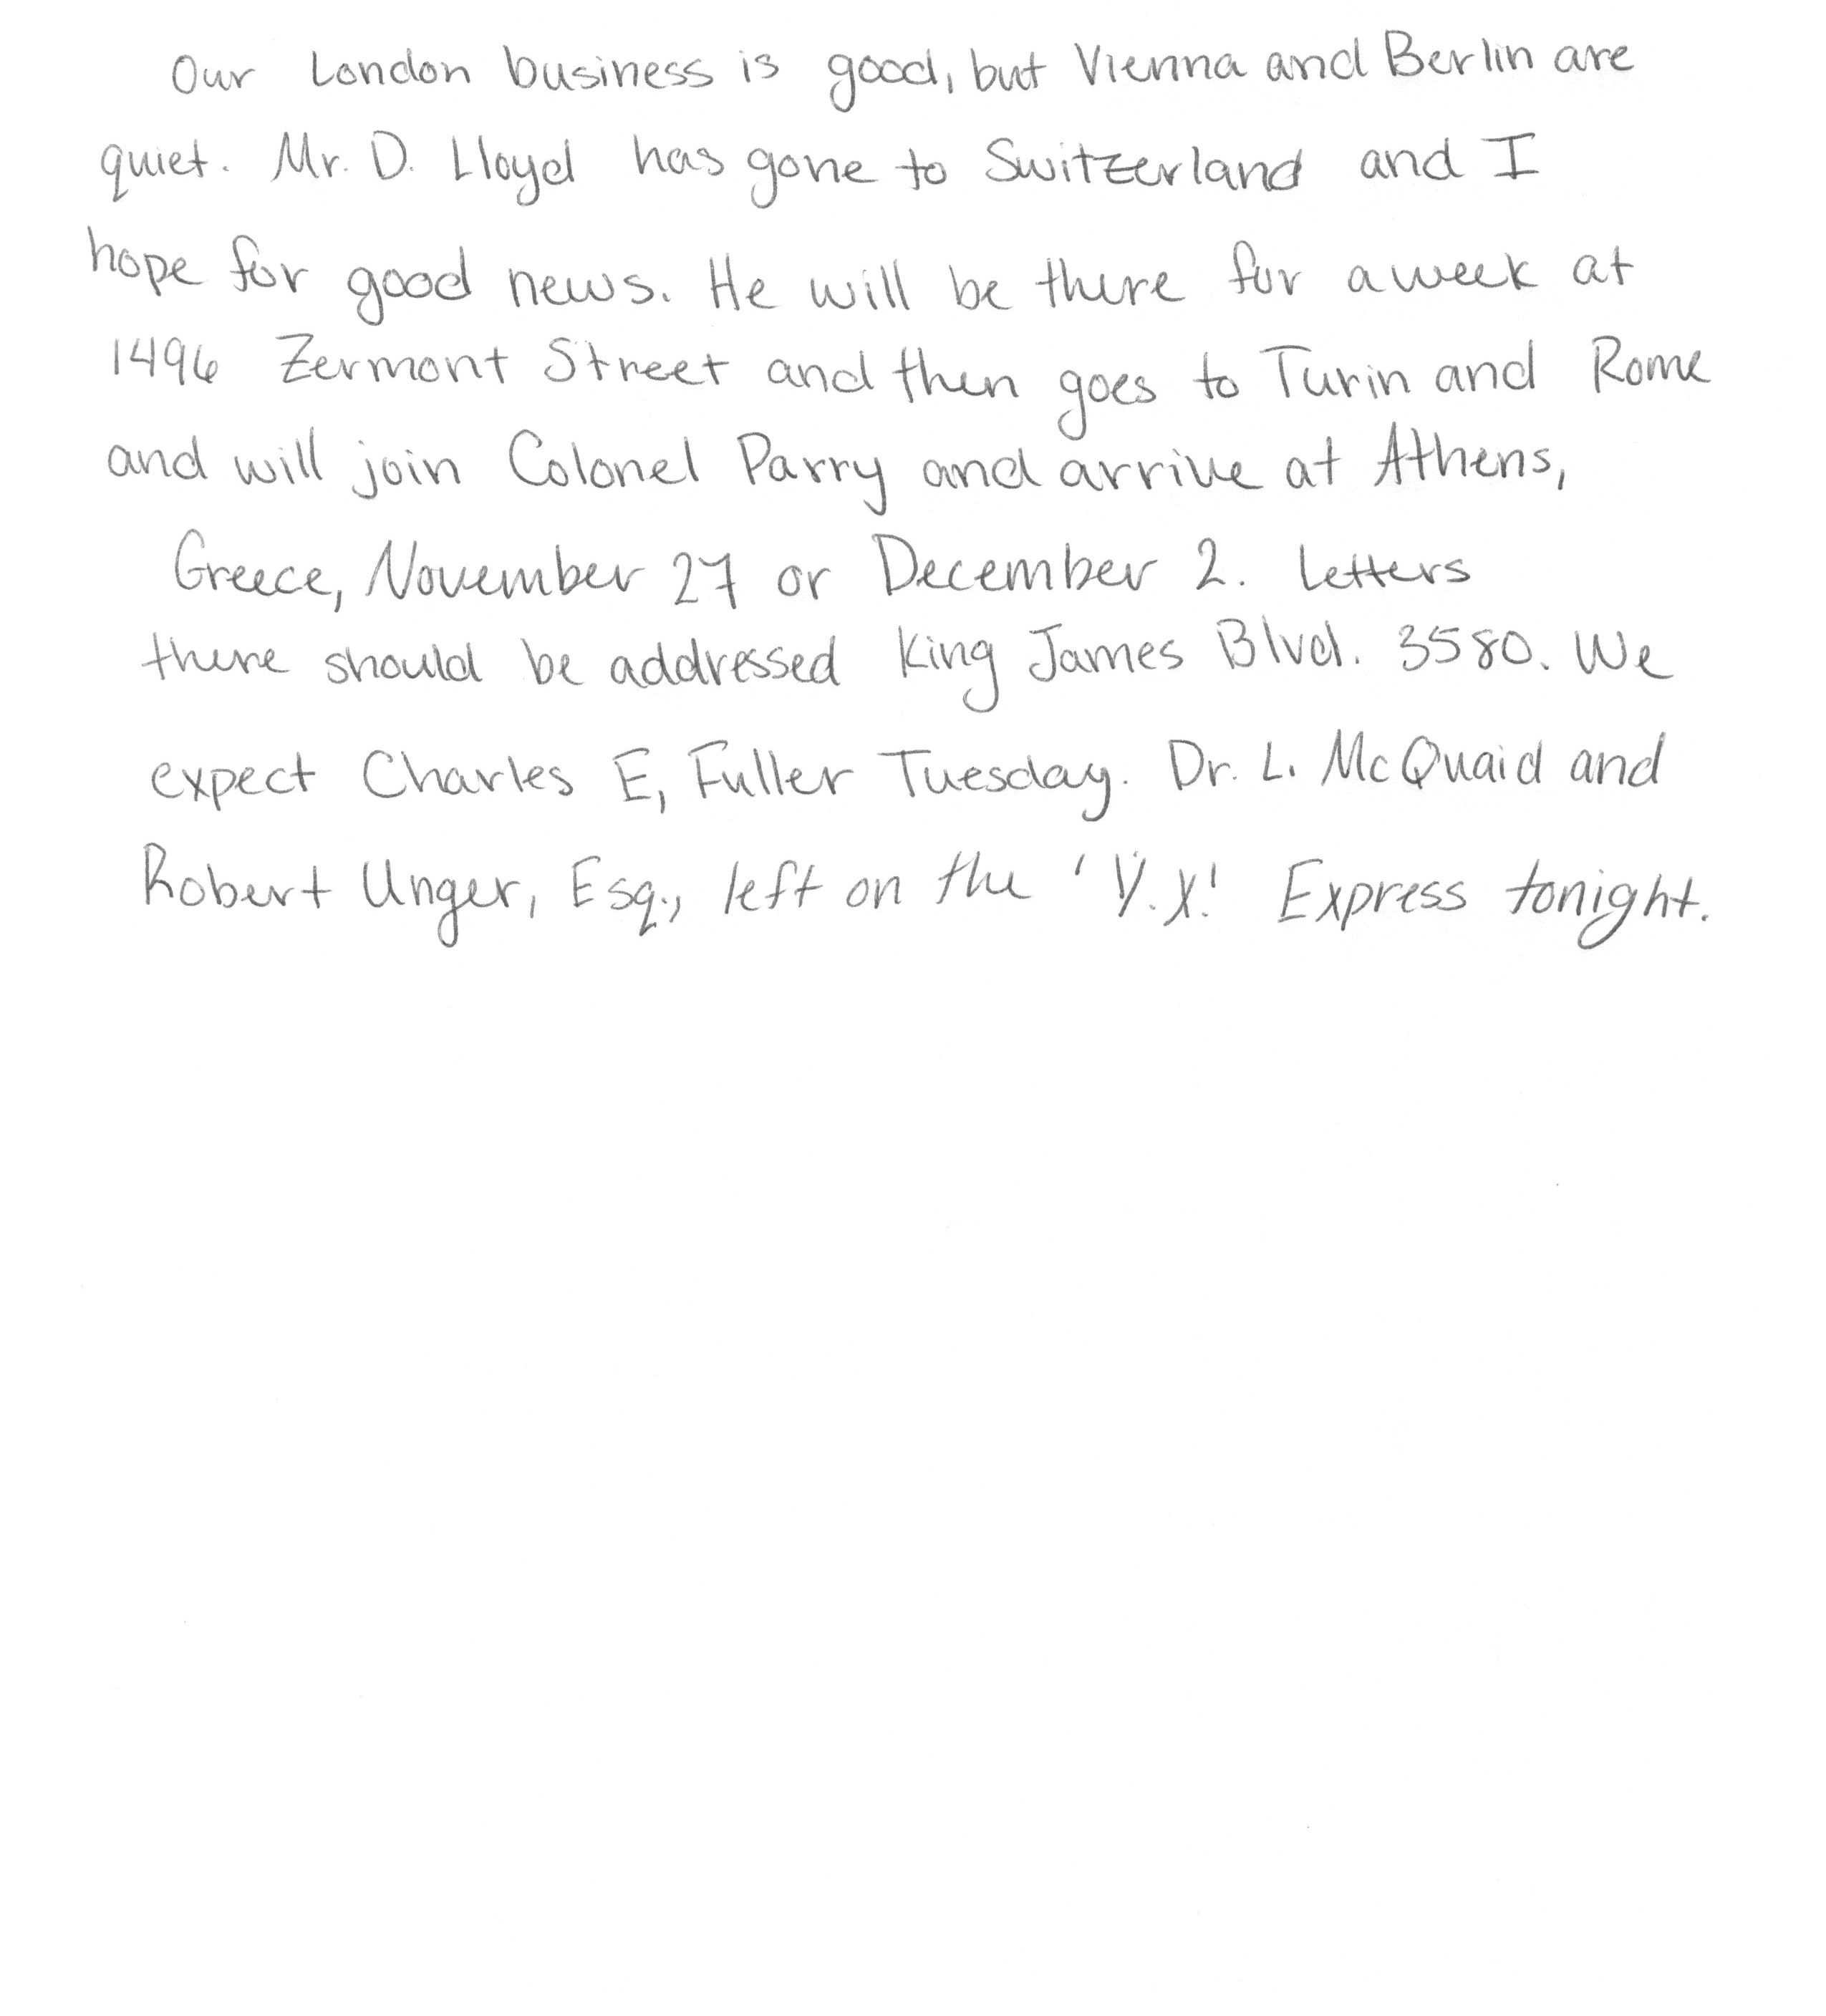 Our London business is good, but Vienna and Berlin are
quiet. Mr. D. Lloyd has gone to Switzerland and I
hope for good news. He will be there for a week at
1496 Zermont Street and then goes to Turin and Rome
and will join Colonel Parry and arrive at Athens,
Greece, November 27 or December 2. Letters
there should be addressed King James Blvd. 3580. We
expect Charles E, Fuller Tuesday. Dr. L. McQuaid and
Robert Unger, Esq., left on the 'Y.X.' Express tonight.